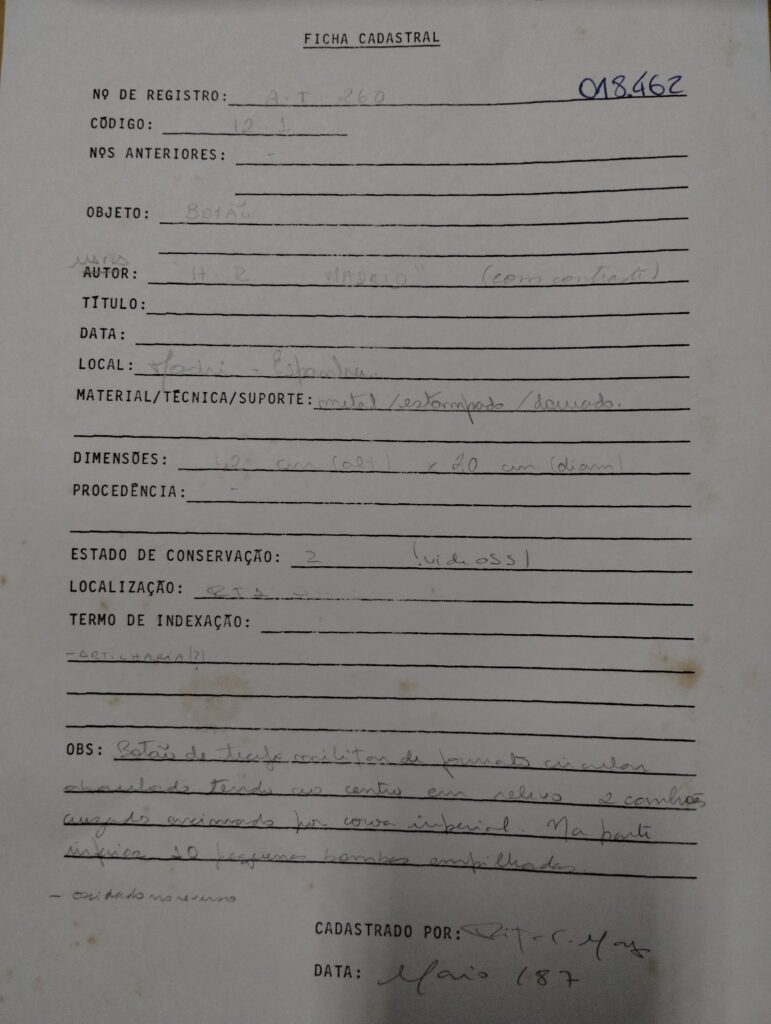 FICHA CADASTRAL
018.462
Nº DE REGISTRO: A.T. 260
CÓDIGO: 12.1
NOS ANTERIORES: -
OBJETO: BOTÃO
AUTOR: "H R MADRID" (com contraste)
TÍTULO:
DATA:
LOCAL: Madri - Espanha.
MATERIAL/TÉCNICA/SUPORTE: metal/estampado/dourado.
DIMENSÕES: 1,2 cm (alt) x 2,0 cm (diam)
PROCEDÊNCIA: -
ESTADO DE CONSERVAÇÃO: 2 (vide OSS)
LOCALIZAÇÃO:
TERMO DE INDEXAÇÃO:
- ARTILHARIA(?)
OBS: Botão de militar de formato circular
abaulado tendo ao centro em relevo 2 canhões
cruzado encimado por coroa imperial. Na parte
inferior 10 pequenas bombas empilhadas.
- oxidado no reverso
CADASTRADO POR:
DATA: Maio /87